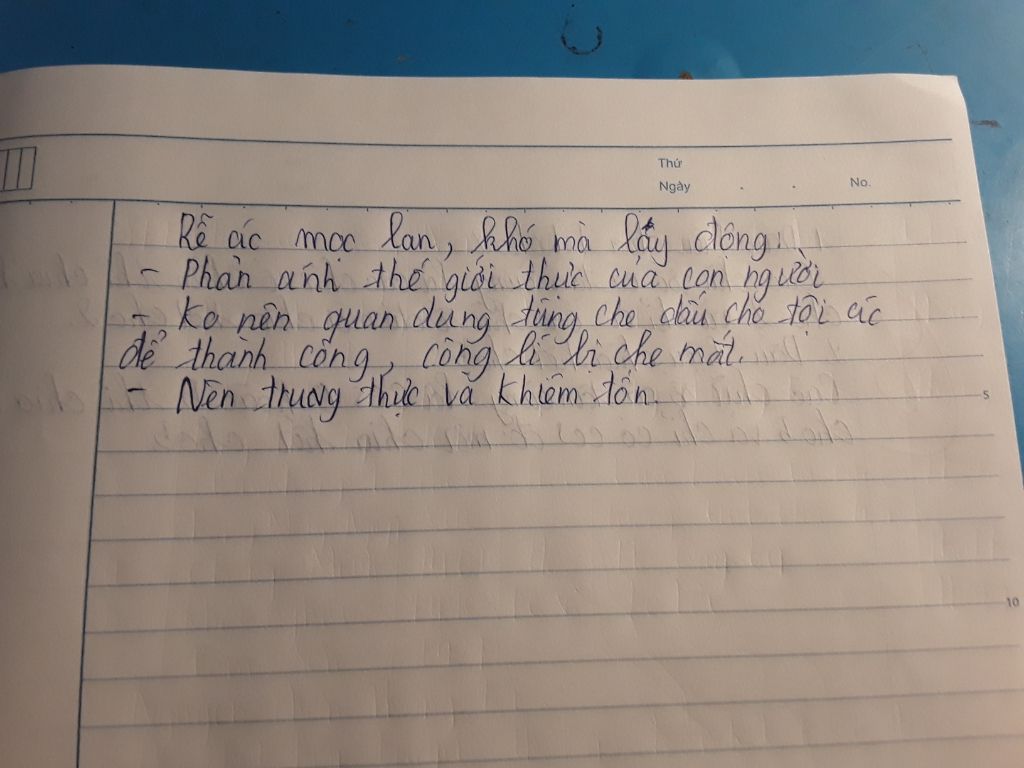 Thứ
Ngày . . No.
Rễ ác mọc lan, khó mà lấy đông.
- Phản ánh thế giới thực của con người
- Ko nên quan dung tũng che dấu cho tội ác
để thành công, công lí bi che mắt.
- Nên trung thực và khiêm tốn.
5
10